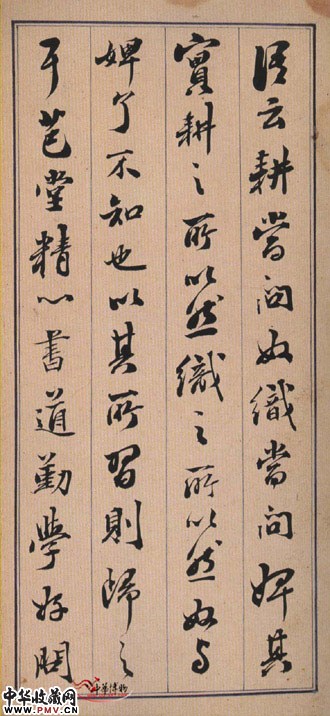 語云耕當問奴織當問婢其
實耕之所以然織之所以然奴与
婢了不知也以其所習則歸之
芑堂精心書道勤學好問
中华博物
中华收藏网
WWW.PMV.CN
中华收藏网
WWW.PMV.CN